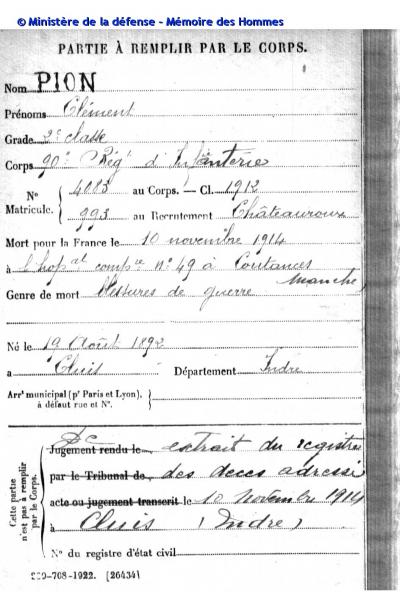 © Ministère de la défense - Mémoire des Hommes
PARTIE À REMPLIR PAR LE CORPS.
Nom PION
Prénoms Clément
Grade 2e classe
Corps 90e Régt d'Infanterie
N° Matricule. { 4083 au Corps. — Cl. 1912
993 au Recrutement Châteauroux
Mort pour la France le 10 novembre 1914
à l'hopal compre n° 49 à Coutances
Manche)
Genre de mort blessures de guerre
Né le 19 Août 1892
a Cluis Département Indre
Arrt municipal (pr Paris et Lyon),
à défaut rue et N°.
Cette partie n'est pas à remplir par le Corps.
Jugement rendu le extrait du registre
par le Tribunal de des deces adressé
acte ou jugement transcrit le 10 novembre 1914
à Cluis (Indre)
N° du registre d'état civil
-708-1922. [26434]